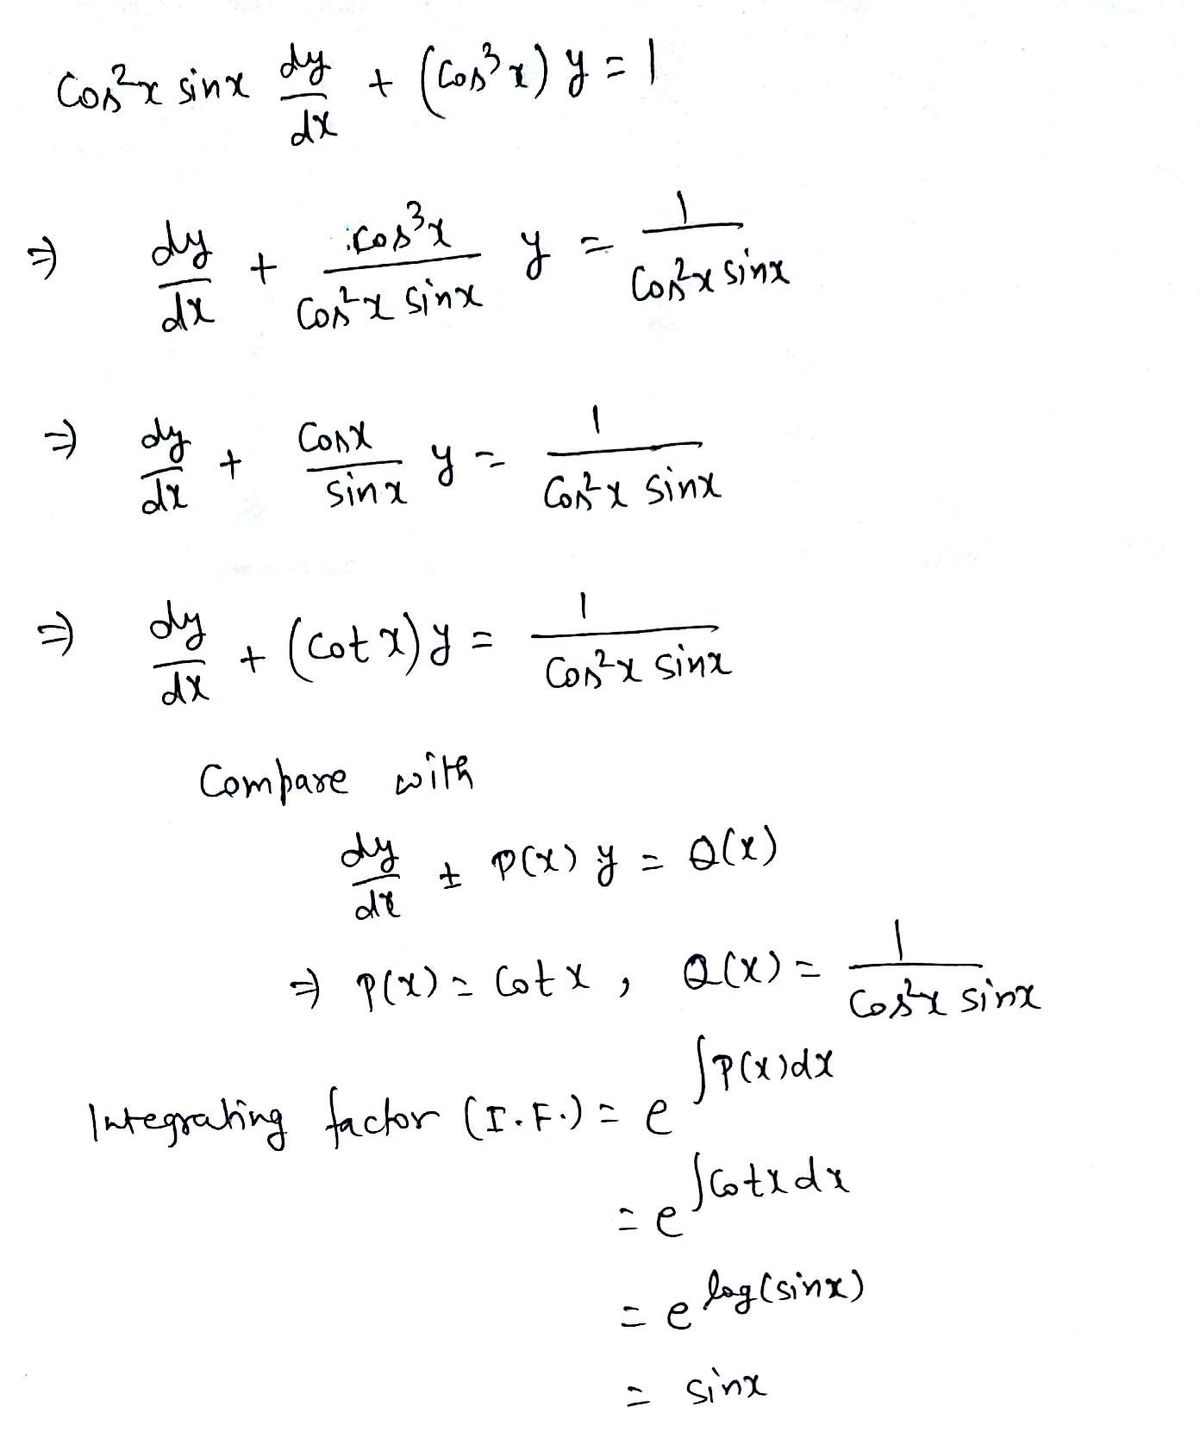 cos²x sinx dy/dx + (cos³x) y = 1
⇒ dy/dx + cos³x/(cos²x sinx) y = 1/(cos²x sinx)
⇒ dy/dx + cosx/sinx y = 1/(cos²x sinx)
⇒ dy/dx + (cot x) y = 1/(cos²x sinx)
Compare with
dy/dx ± P(x) y = Q(x)
⇒ P(x) = cot x , Q(x) = 1/(cos²x sinx)
Integrating factor (I.F.) = e^∫P(x)dx
= e^∫cotx dx
= e^log(sinx)
= sinx